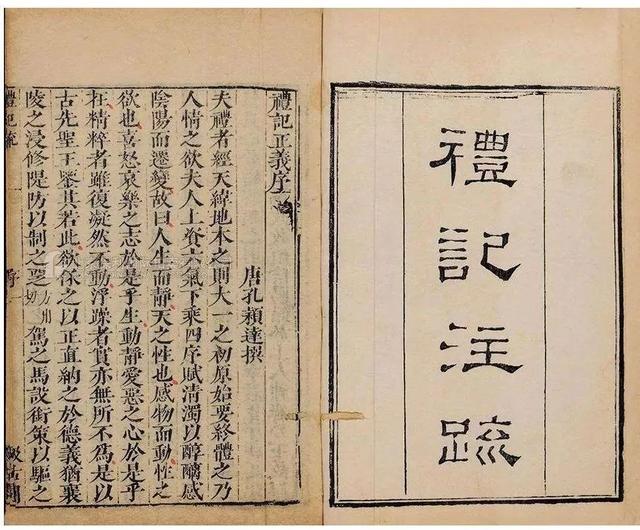 禮記注疏
禮記正義序
唐孔穎達撰
夫禮者經天緯地本之則大一之初原始要終體之乃
人情之欲夫人上資六氣下乘四序賦清濁以醇醨感
陰陽而遷變故曰人生而靜天之性也感物而動性之
欲也喜怒哀樂之志於是乎生動靜愛惡之心於是乎
在精粹者雖復凝然不動浮躁者實亦無所不為是以
古先聖王鑒其若此欲保之以正直納之於德義猶襄
陵之浸修隄防以制之覂方用切駕之馬設銜策以驅之
禮記疏
序
一
汲古閣